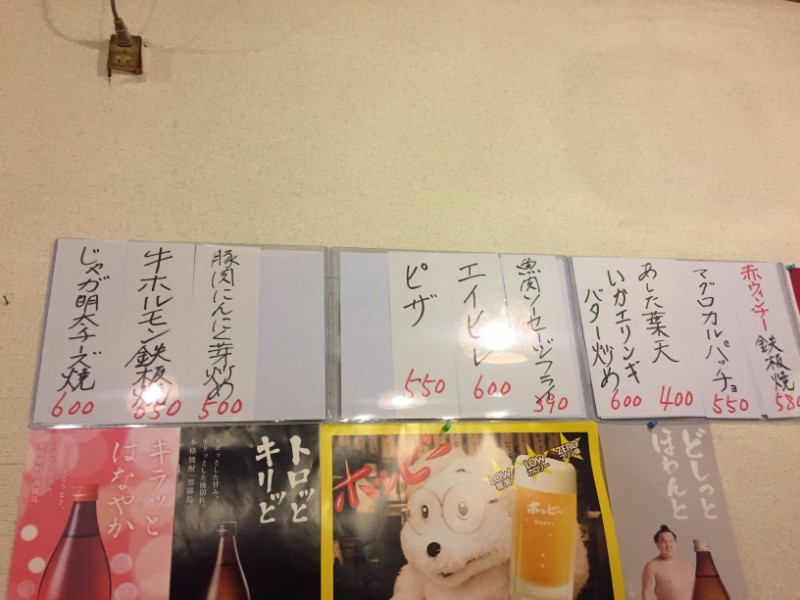 赤ウィンナー鉄板焼
580
マグロカルパッチョ
550
あした葉天
400
いかエリンギ
バター炒め
600
魚肉ソーセージフライ
390
エイヒレ
600
ピザ
550
豚肉にんにく芽炒め
500
牛ホルモン鉄板焼
650
じゃが明太チーズ焼
600
キラッと
はなやか
トロッと
キリッと
本格焼酎 黒霧島
ホッピー
LOW
LOW
カロリー
ZERO
プリン体
ホッピー
HOPPY
どしっと
ほわんと